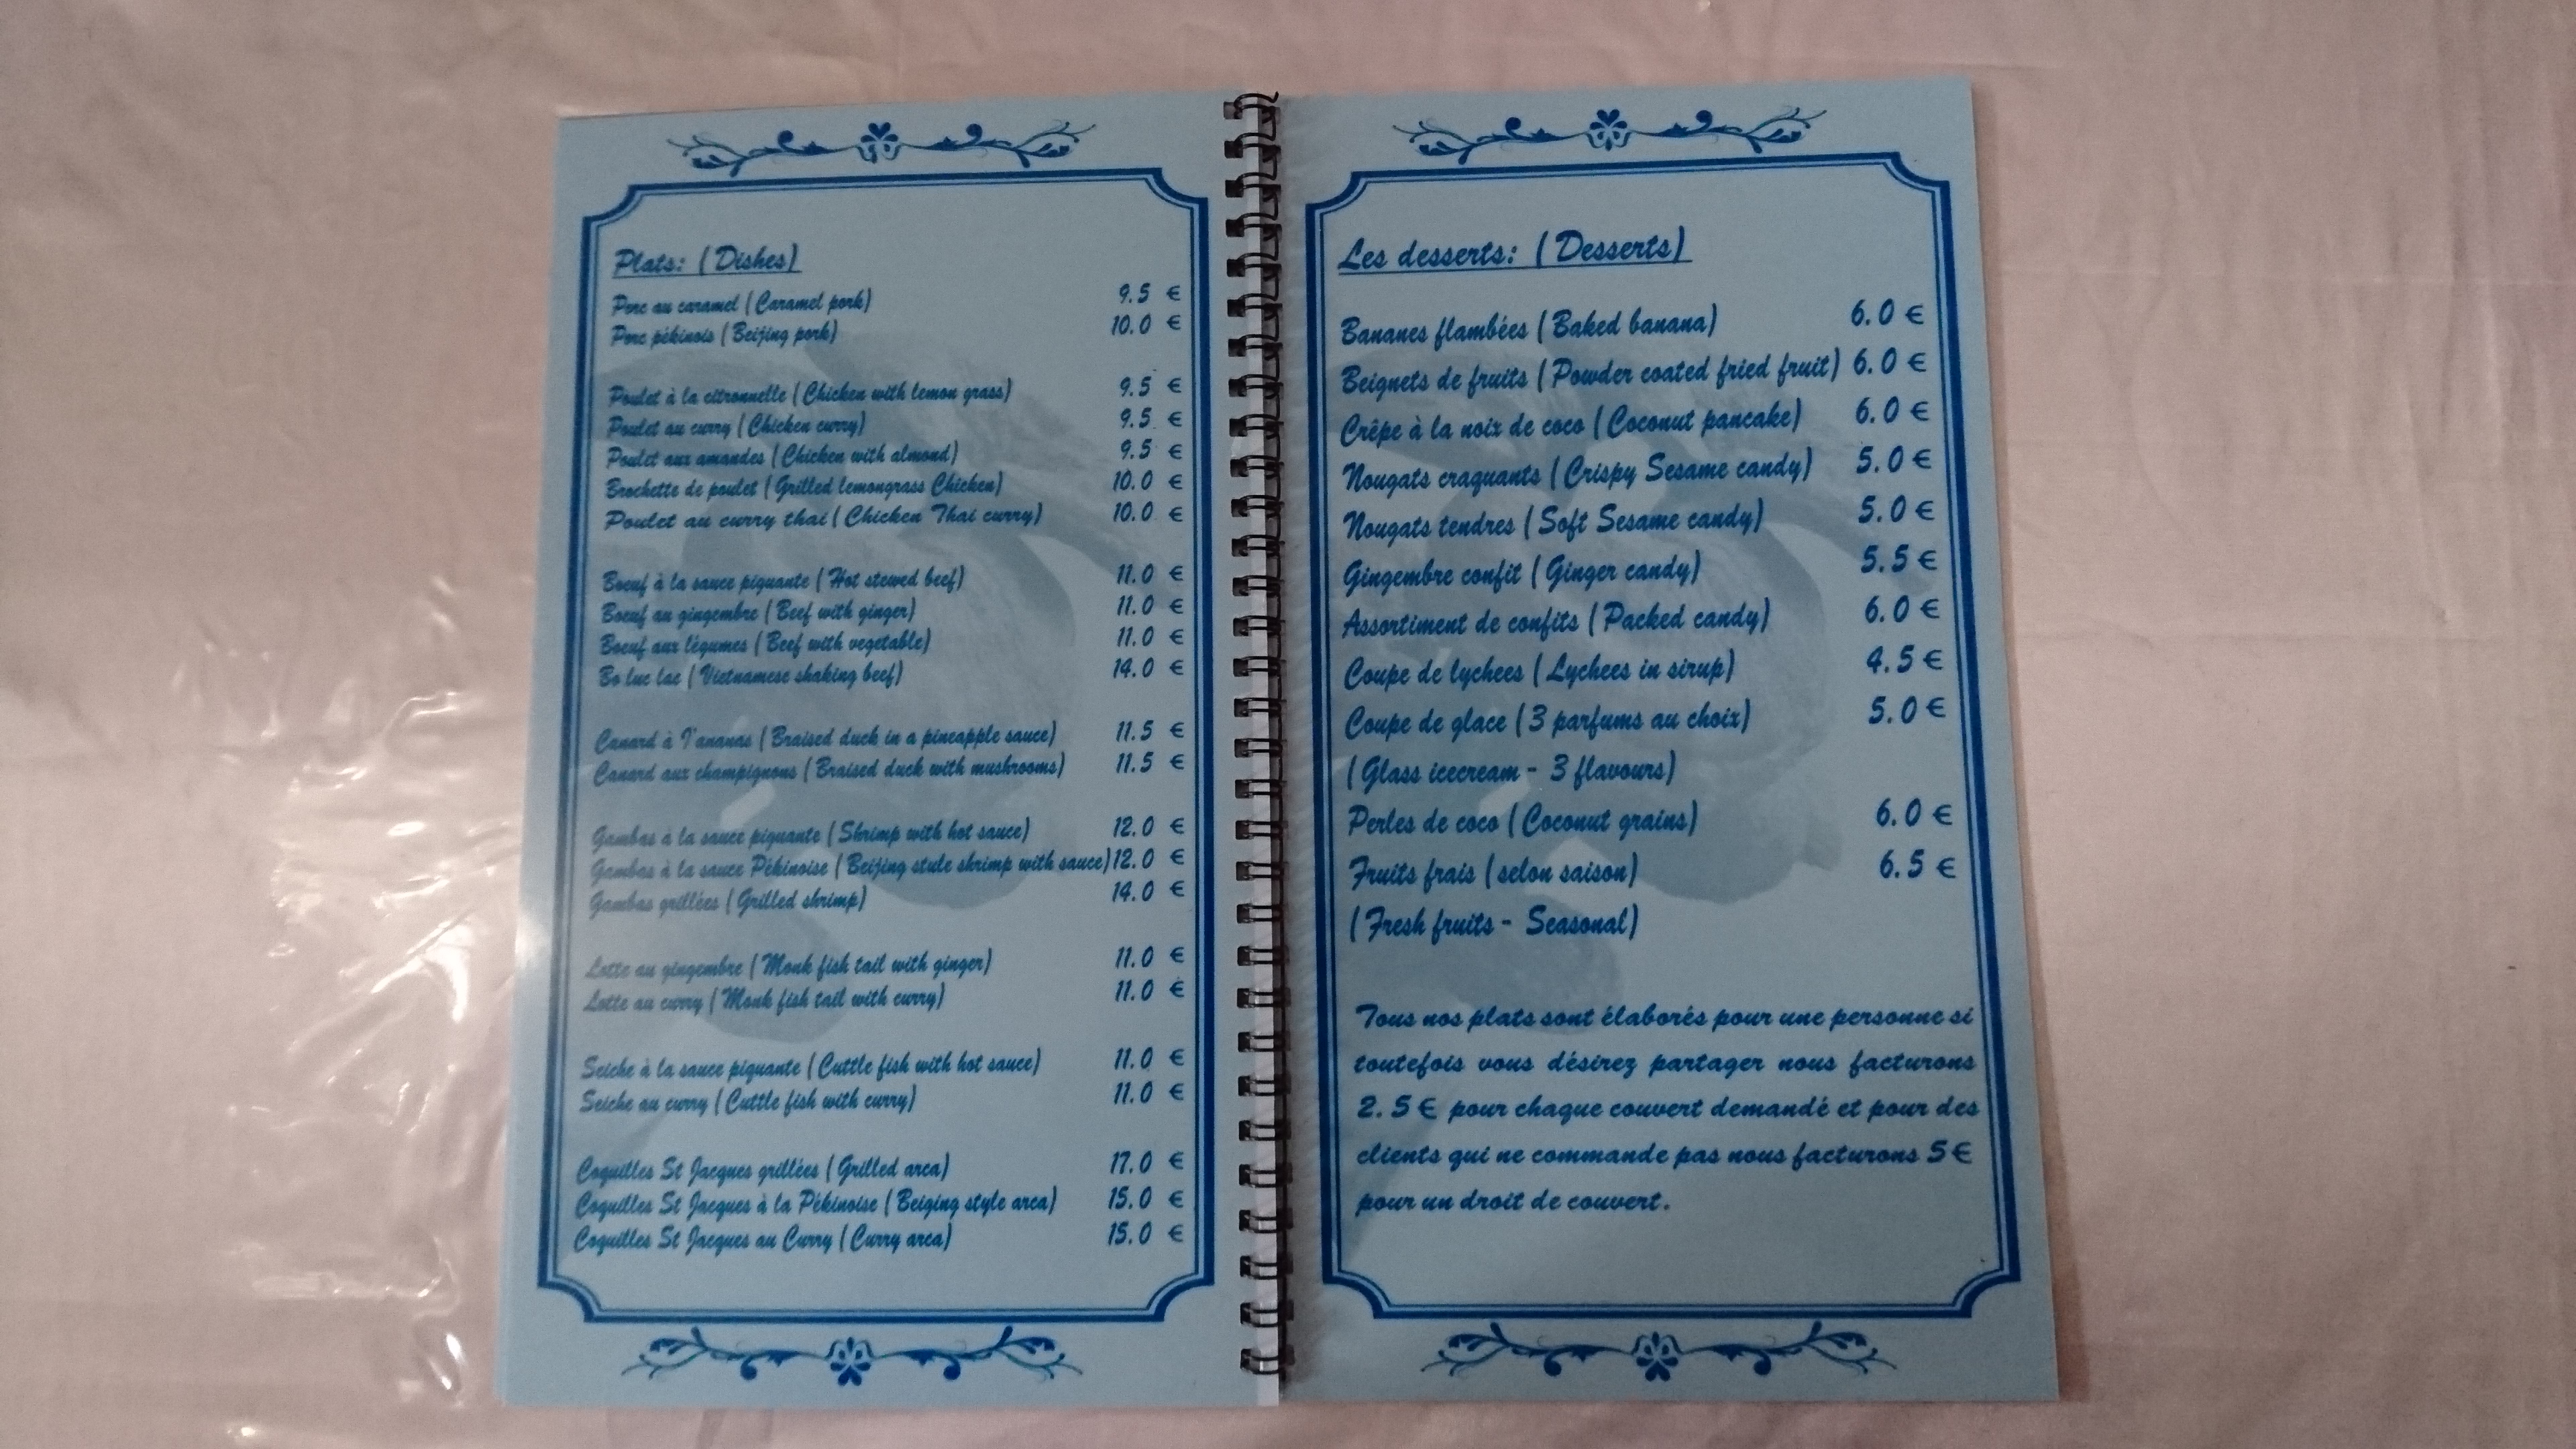 Plats: (Dishes)
Porc au caramel (Caramel pork) 9.5 €
Porc pékinois (Beijing pork) 10.0 €
Poulet à la citronnelle (Chicken with lemon grass) 9.5 €
Poulet au curry (Chicken curry) 9.5 €
Poulet aux amandes (Chicken with almond) 9.5 €
Brochette de poulet (Grilled lemongrass Chicken) 10.0 €
Poulet au curry thai (Chicken Thai curry) 10.0 €
Boeuf à la sauce piquante (Hot stewed beef) 11.0 €
Boeuf au gingembre (Beef with ginger) 11.0 €
Boeuf aux légumes (Beef with vegetable) 11.0 €
Bo luc lac (Vietnamese shaking beef) 14.0 €
Canard à l'ananas (Braised duck in a pineapple sauce) 11.5 €
Canard aux champignons (Braised duck with mushrooms) 11.5 €
Gambas à la sauce piquante (Shrimp with hot sauce) 12.0 €
Gambas à la sauce Pékinoise (Beijing stule shrimp with sauce) 12.0 €
Gambas grillées (Grilled shrimp) 14.0 €
Lotte au gingembre (Monk fish tail with ginger) 11.0 €
Lotte au curry (Monk fish tail with curry) 11.0 €
Seiche à la sauce piquante (Cuttle fish with hot sauce) 11.0 €
Seiche au curry (Cuttle fish with curry) 11.0 €
Coquilles St Jacques grillées (Grilled arca) 17.0 €
Coquilles St Jacques à la Pékinoise (Beiging style arca) 15.0 €
Coquilles St Jacques au Curry (Curry arca) 15.0 €
Les desserts: (Desserts)
Bananes flambées (Baked banana) 6.0 €
Beignets de fruits (Powder coated fried fruit) 6.0 €
Crêpe à la noix de coco (Coconut pancake) 6.0 €
Nougats craquants (Crispy Sesame candy) 5.0 €
Nougats tendres (Soft Sesame candy) 5.0 €
Gingembre confit (Ginger candy) 5.5 €
Assortiment de confits (Packed candy) 6.0 €
Coupe de lychees (Lychees in sirup) 4.5 €
Coupe de glace (3 parfums au choix) 5.0 €
(Glass icecream - 3 flavours)
Perles de coco (Coconut grains) 6.0 €
Fruits frais (selon saison) 6.5 €
(Fresh fruits - Seasonal)
Tous nos plats sont élaborés pour une personne si
toutefois vous désirez partager nous facturons
2.5€ pour chaque couvert demandé et pour des
clients qui ne commande pas nous facturons 5€
pour un droit de couvert.